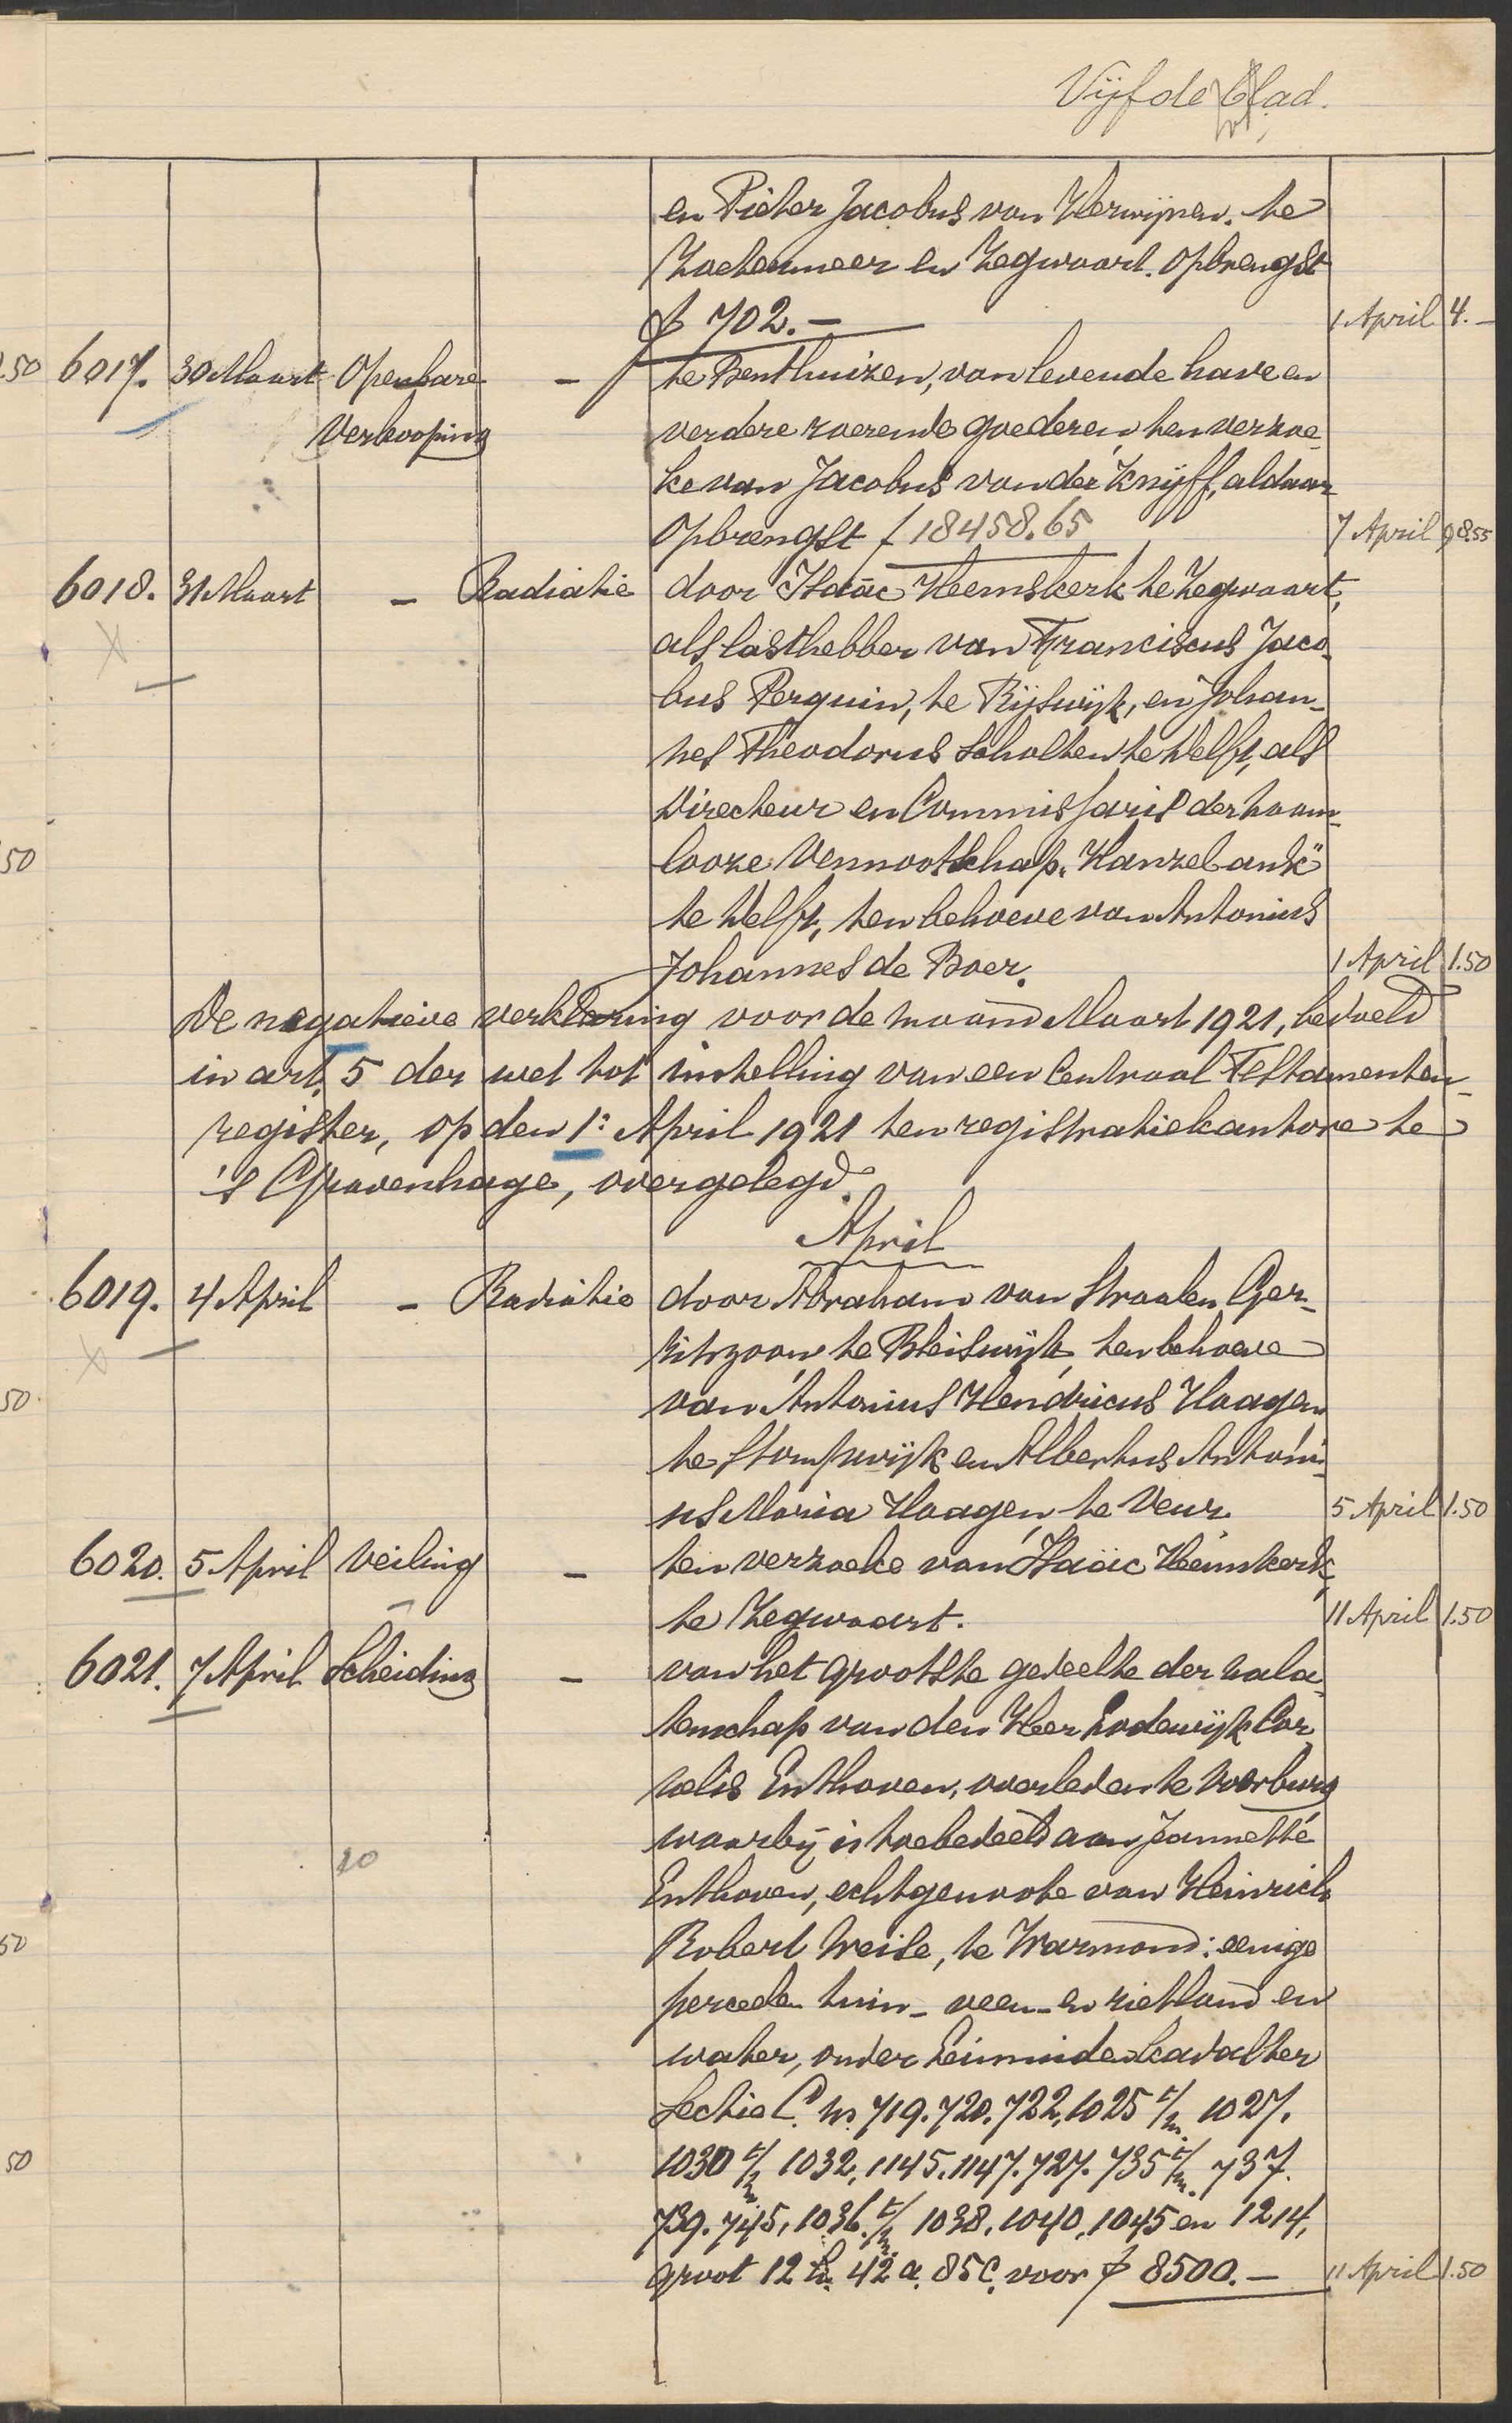 Vijfde blad.
en Pieter Jacobus van Herwijnen, te
Zoetermeer en Zegwaart. Opbrengst
f 702.— 1 April 4.—
50 6017. 30 Maart Openbare — te Benthuizen, van levende have en
Verkooping verdere roerende goederen, ten verzoe-
ke van Jacobus van der Knijff, aldaar
Opbrengst f 18458.65 7 April 98.55
6018. 31 Maart — Radiatie door Isaäc Heemskerk te Zegwaart,
als lasthebber van Franciscus Jaco-
bus Perquin, te Rijswijk, en Johan-
nes Theodorus Scholten te Delft, als
Directeur en Commissaris der naam-
50 looze Vennootschap „Hanzebank"
te Delft, ten behoeve van Antonius
Johannes de Boer. 1 April 1.50
De negatieve verklaring voor de maand Maart 1921, bedoeld
in art. 5 der wet tot instelling van een Centraal Testamenten-
register, op den 1e April 1921 ten registratiekantore te
's Gravenhage, overgelegd.
April
6019. 4 April — Radiatie door Abraham van Straalen Ger-
ritszoon te Bleiswijk, ten behoeve
50 van Antonius Hendricus Haagen
te Stompwijk en Albertus Antoni-
us Maria Haagen, te Veur. 5 April 1.50
6020. 5 April Veiling — ten verzoeke van Isaäc Heemskerk,
te Zegwaart. 11 April 1.50
6021. 7 April Scheiding — van het grootste gedeelte der nala-
tenschap van den Heer Lodewijk Cor-
nelis Enthoven, overleden te Voorburg
waarbij is toebedeeld aan Jeannette
20 Enthoven, echtgenoote van Heinrich
50 Robert Weise, te Warmond: eenige
perceelen tuin- veen- en rietland en
water, onder Leimuiden Kadaster
Sectie C. no. 719. 720. 722, 1025 t/m. 1027.
50 1030 t/m. 1032, 1145. 1147. 727. 735 t/m. 737.
739. 745, 1036. t/m. 1038. 1040, 1045 en 1214,
groot 12 h. 42 a. 85 c. voor f 8500.— 11 April 1.50